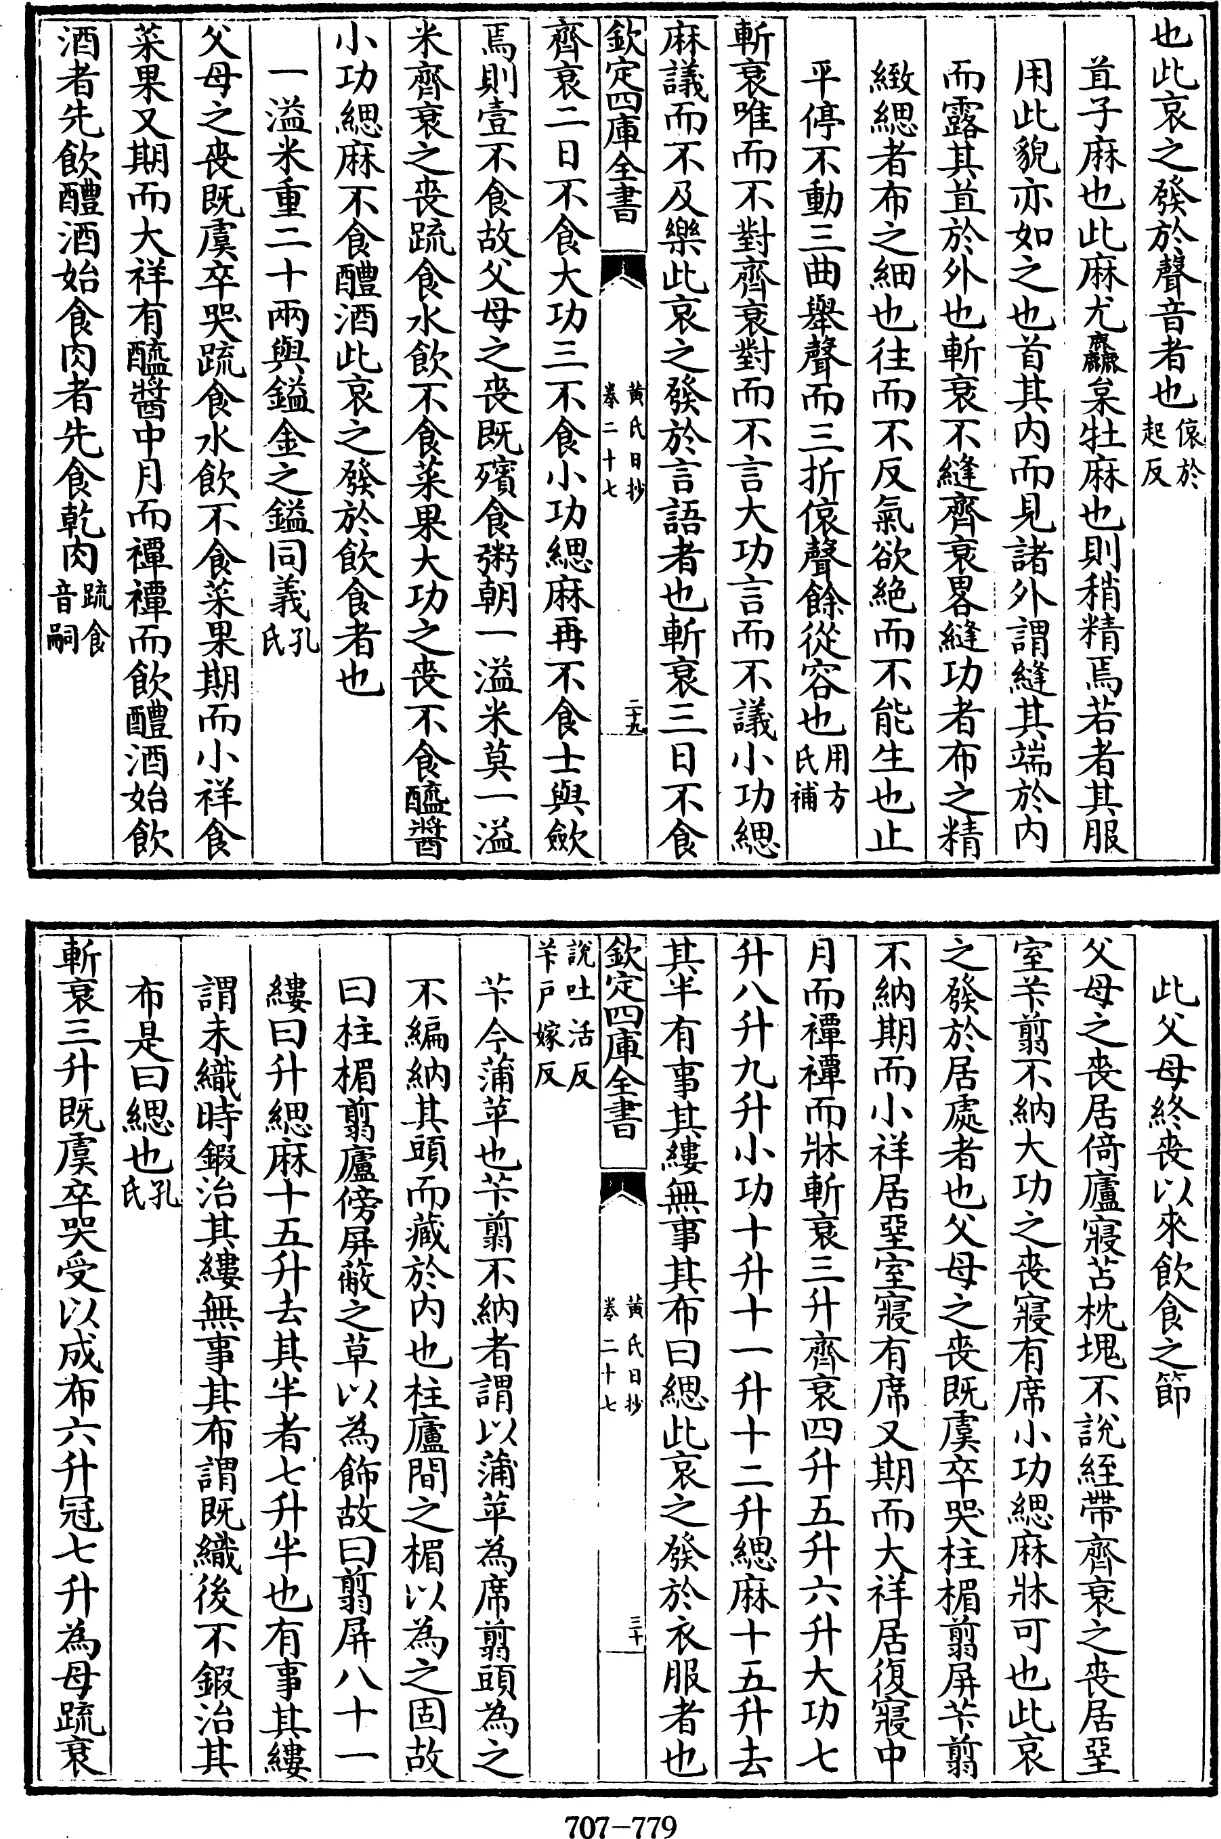 也此哀之發於聲音者也偯於起反
苴子麻也此麻尤麤枲牡麻也則稍精焉若者其服
用此貌亦如之也首其内而見諸外謂縫其端於内
而露其苴於外也斬衰不縫齊衰畧縫功者布之精
緻緦者布之細也往而不反氣欲絶而不能生也止
平停不動三曲舉聲而三折偯聲餘從容也用方氏補
斬衰唯而不對齊衰對而不言大功言而不議小功緦
麻議而不及樂此哀之發於言語者也斬衰三日不食
欽定四庫全書
黄氏日抄
卷二十七
二十九
齊衰二日不食大功三不食小功緦麻再不食士與斂
焉則壹不食故父母之喪既殯食粥朝一溢米莫一溢
米齊衰之喪疏食水飲不食菜果大功之喪不食醯醬
小功緦麻不食醴酒此哀之發於飲食者也
一溢米重二十兩與鎰金之鎰同義孔氏
父母之喪既虞卒哭疏食水飲不食菜果期而小祥食
菜果又期而大祥有醯醬中月而禫禫而飲醴酒始飲
酒者先飲醴酒始食肉者先食乾肉疏食音嗣
此父母終喪以來飲食之節
父母之喪居倚廬寢苫枕塊不說絰帶齊衰之喪居堊
室芐翦不納大功之喪寢有席小功緦麻牀可也此哀
之發於居處者也父母之喪既虞卒哭柱楣翦屏芐翦
不納期而小祥居堊室寢有席又期而大祥居復寢中
月而禫禫而牀斬衰三升齊衰四升五升六升大功七
升八升九升小功十升十一升十二升緦麻十五升去
其半有事其縷無事其布曰緦此哀之發於衣服者也
欽定四庫全書
黄氏日抄
卷二十七
三十
說吐活反芐戶嫁反
芐今蒲苹也芐翦不納者謂以蒲苹為席翦頭為之
不編納其頭而藏於内也柱廬間之楣以為之固故
曰柱楣翦廬傍屏蔽之草以為飾故曰翦屏八十一
縷曰升緦麻十五升去其半者七升半也有事其縷
謂未織時鍜治其縷無事其布謂既織後不鍜治其
布是曰緦也孔氏
斬衰三升既虞卒哭受以成布六升冠七升為母疏衰
707-779